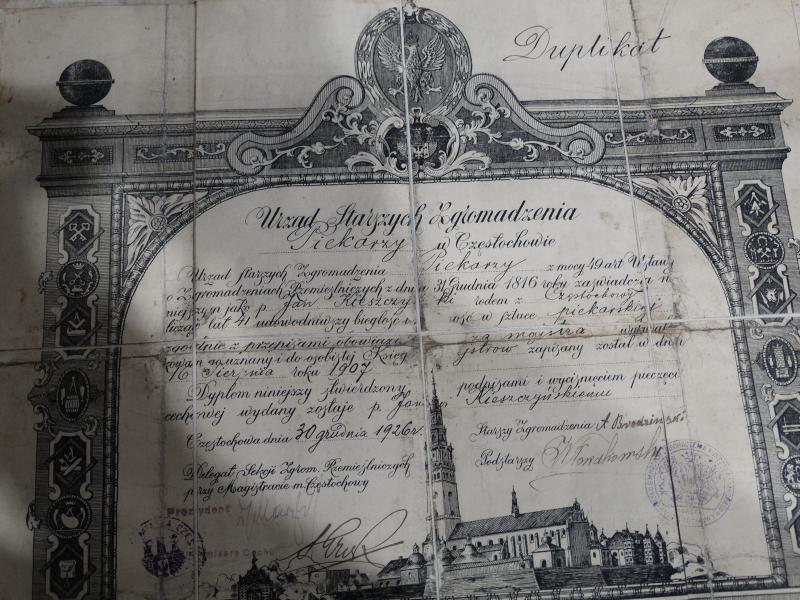 Duplikat
Urząd Starszych Zgromadzenia
Piekarzy w Częstochowie
Urząd starszych Zgromadzenia Piekarzy z mocy 49 art. Ustawy
o Zgromadzeniach Rzemieślniczych z dnia 31 Grudnia 1816 roku zaświadcza ni
niejszym jako p. Jan Kieszczyński rodem z Częstochowy
licząc lat 41 udowodniwszy biegłość w sztuce piekarskiej
zgodnie z przepisami obowiązu za majstra
uznany i do osobistej Księg zapisany został w dniu
16 Sierpnia roku 1907
Dyplom niniejszy stwierdzony podpisami i wyciśnięciem pieczęci
cechowej wydany zostaje p. Janowi Kieszczyńskiemu
Częstochowa dnia 30 grudnia 1926 r.
Starszy Zgromadzenia A Brodziński
Podstarszy
Delegat Sekcji Zgrom. Rzemieślniczych
przy Magistracie m. Częstochowy
Prezydent
Komisarz Cechu